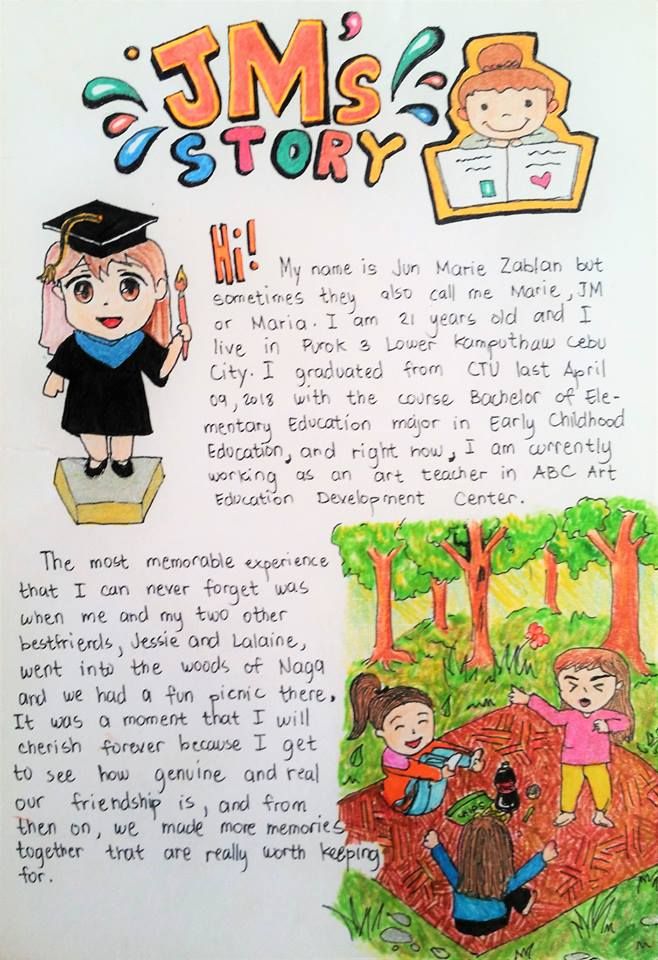 JM's
STORY
Hi! My name is Jun Marie Zablan but
sometimes they also call me Marie, JM
or Maria. I am 21 years old and I
live in Purok 3 Lower Kamputhaw Cebu
City. I graduated from CTU last April
09, 2018 with the course Bachelor of Ele-
mentary Education major in Early Childhood
Education, and right now, I am currently
working as an art teacher in ABC Art
Education Development Center.
The most memorable experience
that I can never forget was
when me and my two other
bestfriends, Jessie and Lalaine,
went into the woods of Naga
and we had a fun picnic there.
It was a moment that I will
cherish forever because I get
to see how genuine and real
our friendship is, and from
then on, we made more memories
together that are really worth keeping
for.